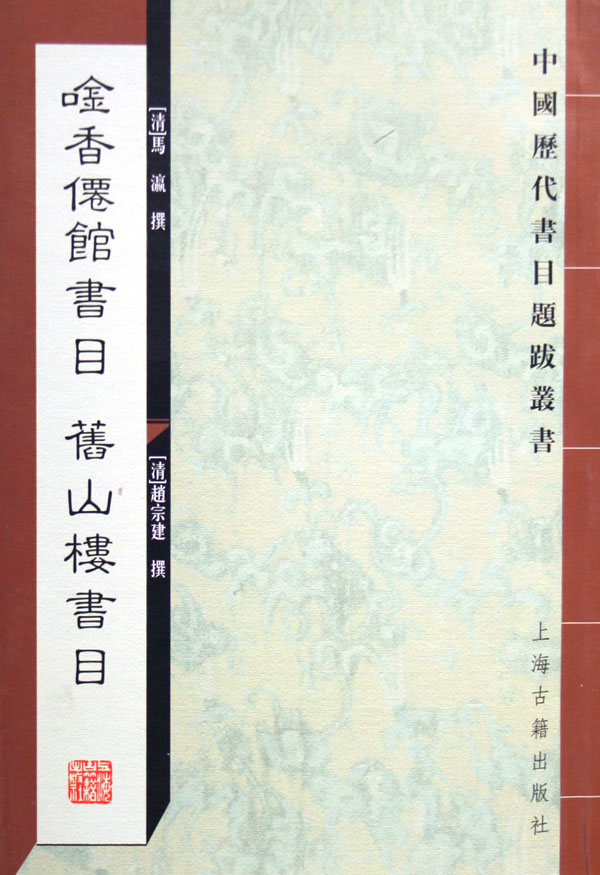 中國歷代書目題跋叢書
上海古籍出版社
[清]馬瀛 撰
[清]趙宗建 撰
唫香僊館書目 舊山樓書目